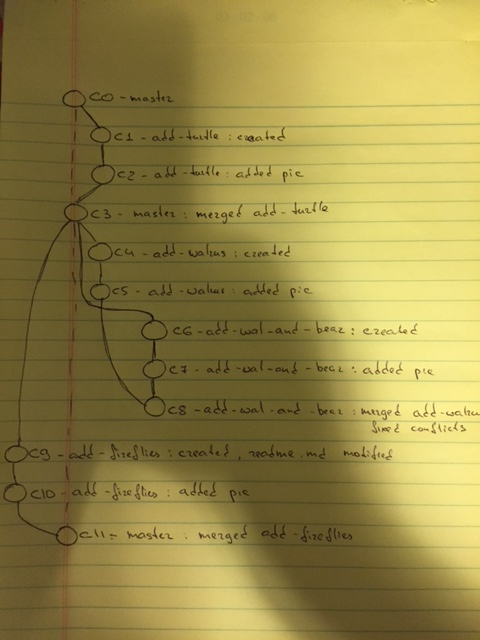 C0 - master
C1 - add-turtle : created
C2 - add-turtle : added pic
C3 - master : merged add-turtle
C4 - add-walrus : created
C5 - add-walrus : added pic
C6 - add-wal-and-bear : created
C7 - add-wal-and-bear : added pic
C8 - add-wal-and-bear : merged add-walru
fixed conflicts
C9 - add-fireflies : created, readme.md modified
C10 - add-fireflies : added pic
C11 - master : merged add-fireflies